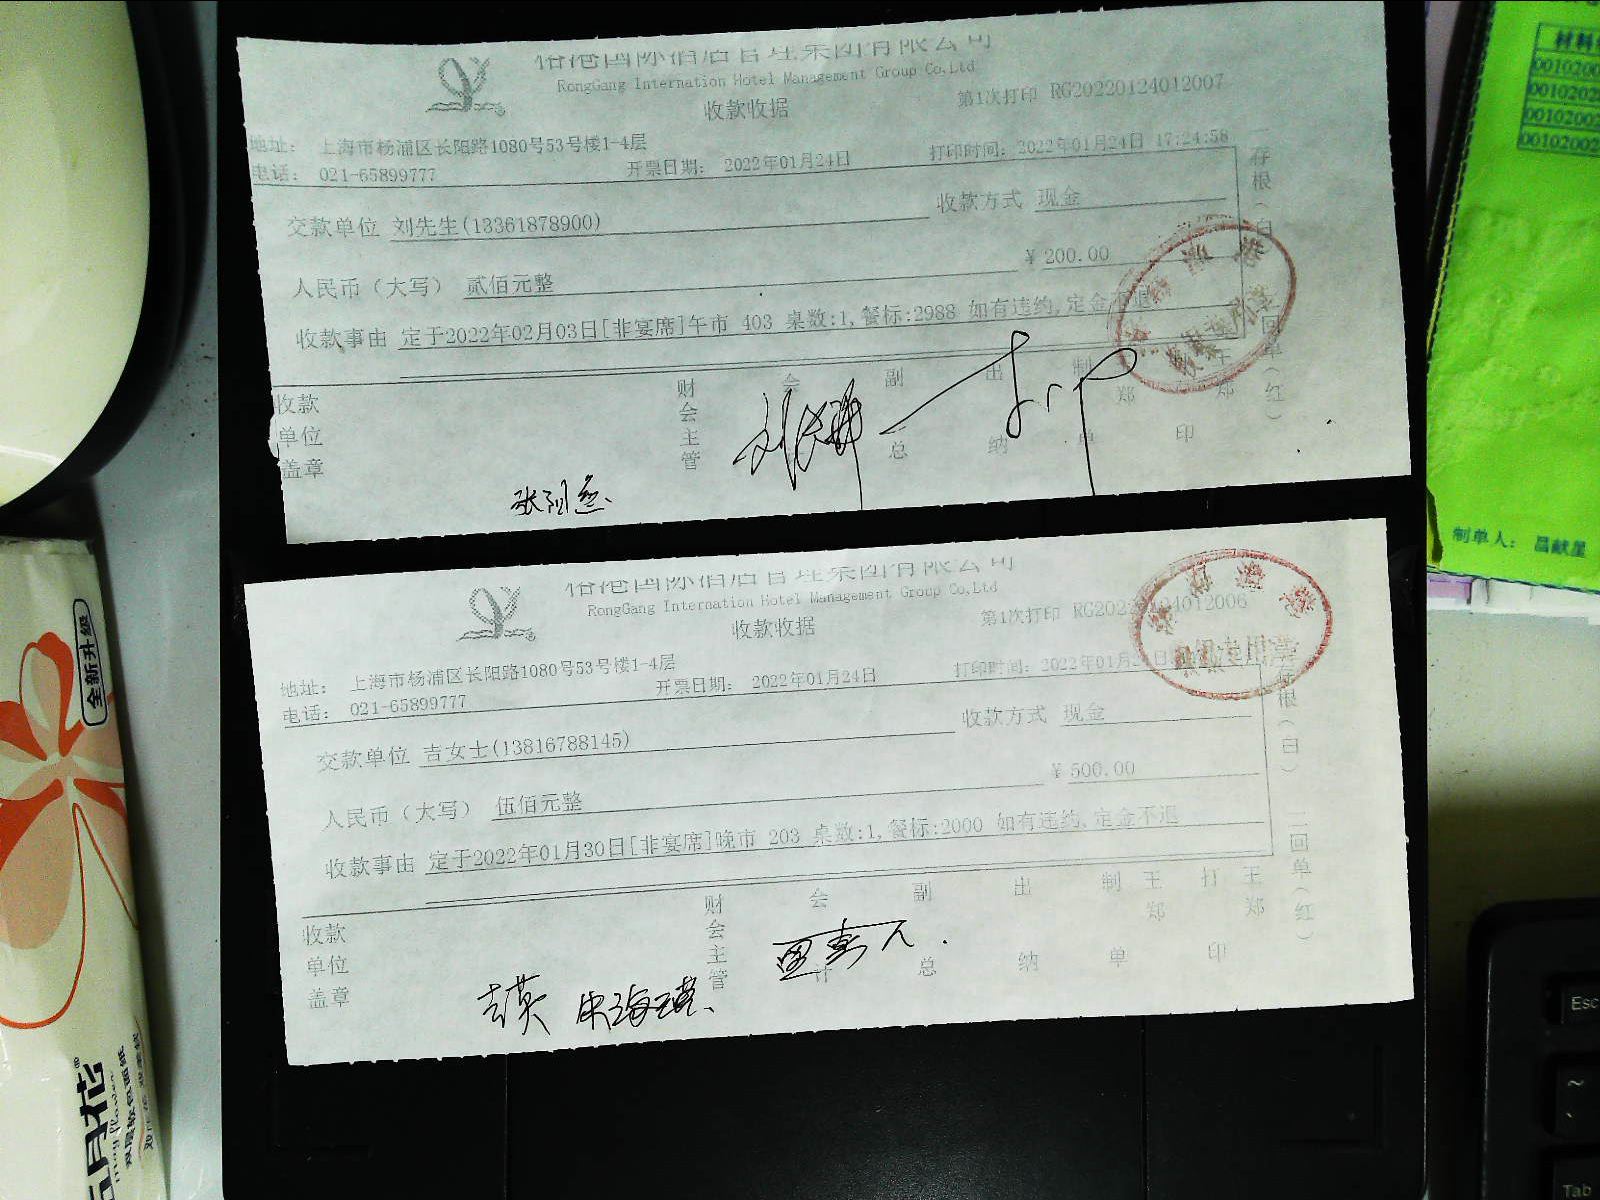 RongGang International Hotel Management Group Co,Ltd
收款收据
第1次打印 RG20220124012007
地址： 上海市杨浦区长阳路1080号53号楼1-4层
电话： 021-65899777
开票日期： 2022年01月24日
打印时间：2022年01月24日 17:24:58
交款单位 刘先生(13361878900)
收款方式 现金
人民币（大写） 贰佰元整
¥ 200.00
收款事由 定于2022年02月03日[非宴席]午市 403 桌数:1,餐标:2988 如有违约,定金不退
收款单位盖章
财会主管
会
副总
出纳
制单
郑
印
存根(白)
二回单(红)
国际酒店管理集团有限公司
RongGang International Hotel Management Group Co,Ltd
收款收据
第1次打印 RG20220124012006
地址： 上海市杨浦区长阳路1080号53号楼1-4层
电话： 021-65899777
开票日期： 2022年01月24日
打印时间：2022年01月24日
交款单位 吉女士(13816788145)
收款方式 现金
人民币（大写） 伍佰元整
¥ 500.00
收款事由 定于2022年01月30日[非宴席]晚市 203 桌数:1,餐标:2000 如有违约,定金不退
收款单位盖章
财会主管
会计
副总
出纳
制单
王郑
打印
王郑
吉英
存根(白)
二回单(红)
全新升级
五月花
May Flower
材料
制单人：
Esc
~
Tab